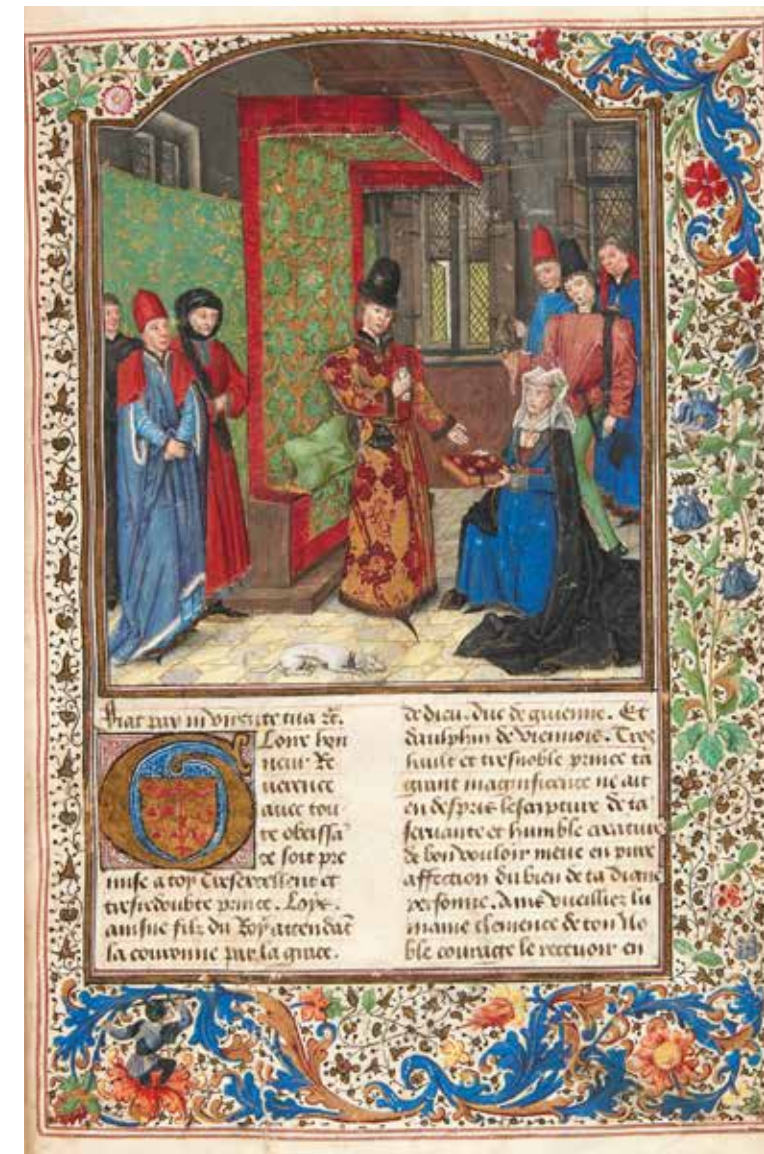 Fiat pax in virtute tua Et.
Loire hon
neur Re
uerence
auec tou
te obeissa
ce soit pre
mise a toy Tresexcellent et
tresredoubte prince. Loys.
ainsne filz du Roy attendat
la couronne par la grace.
de dieu. duc de guienne. Et
daulphin de viennois. Tres
hault et tresnoble prince ta
grant magnificence ne ait
en despris lescripture de ta
seruante et humble creature
de bon vouloir meue en pure
affection du bien de ta digne
personne. Ains vueilliez lu
maine clemence de ton No
ble courage le receuoir en